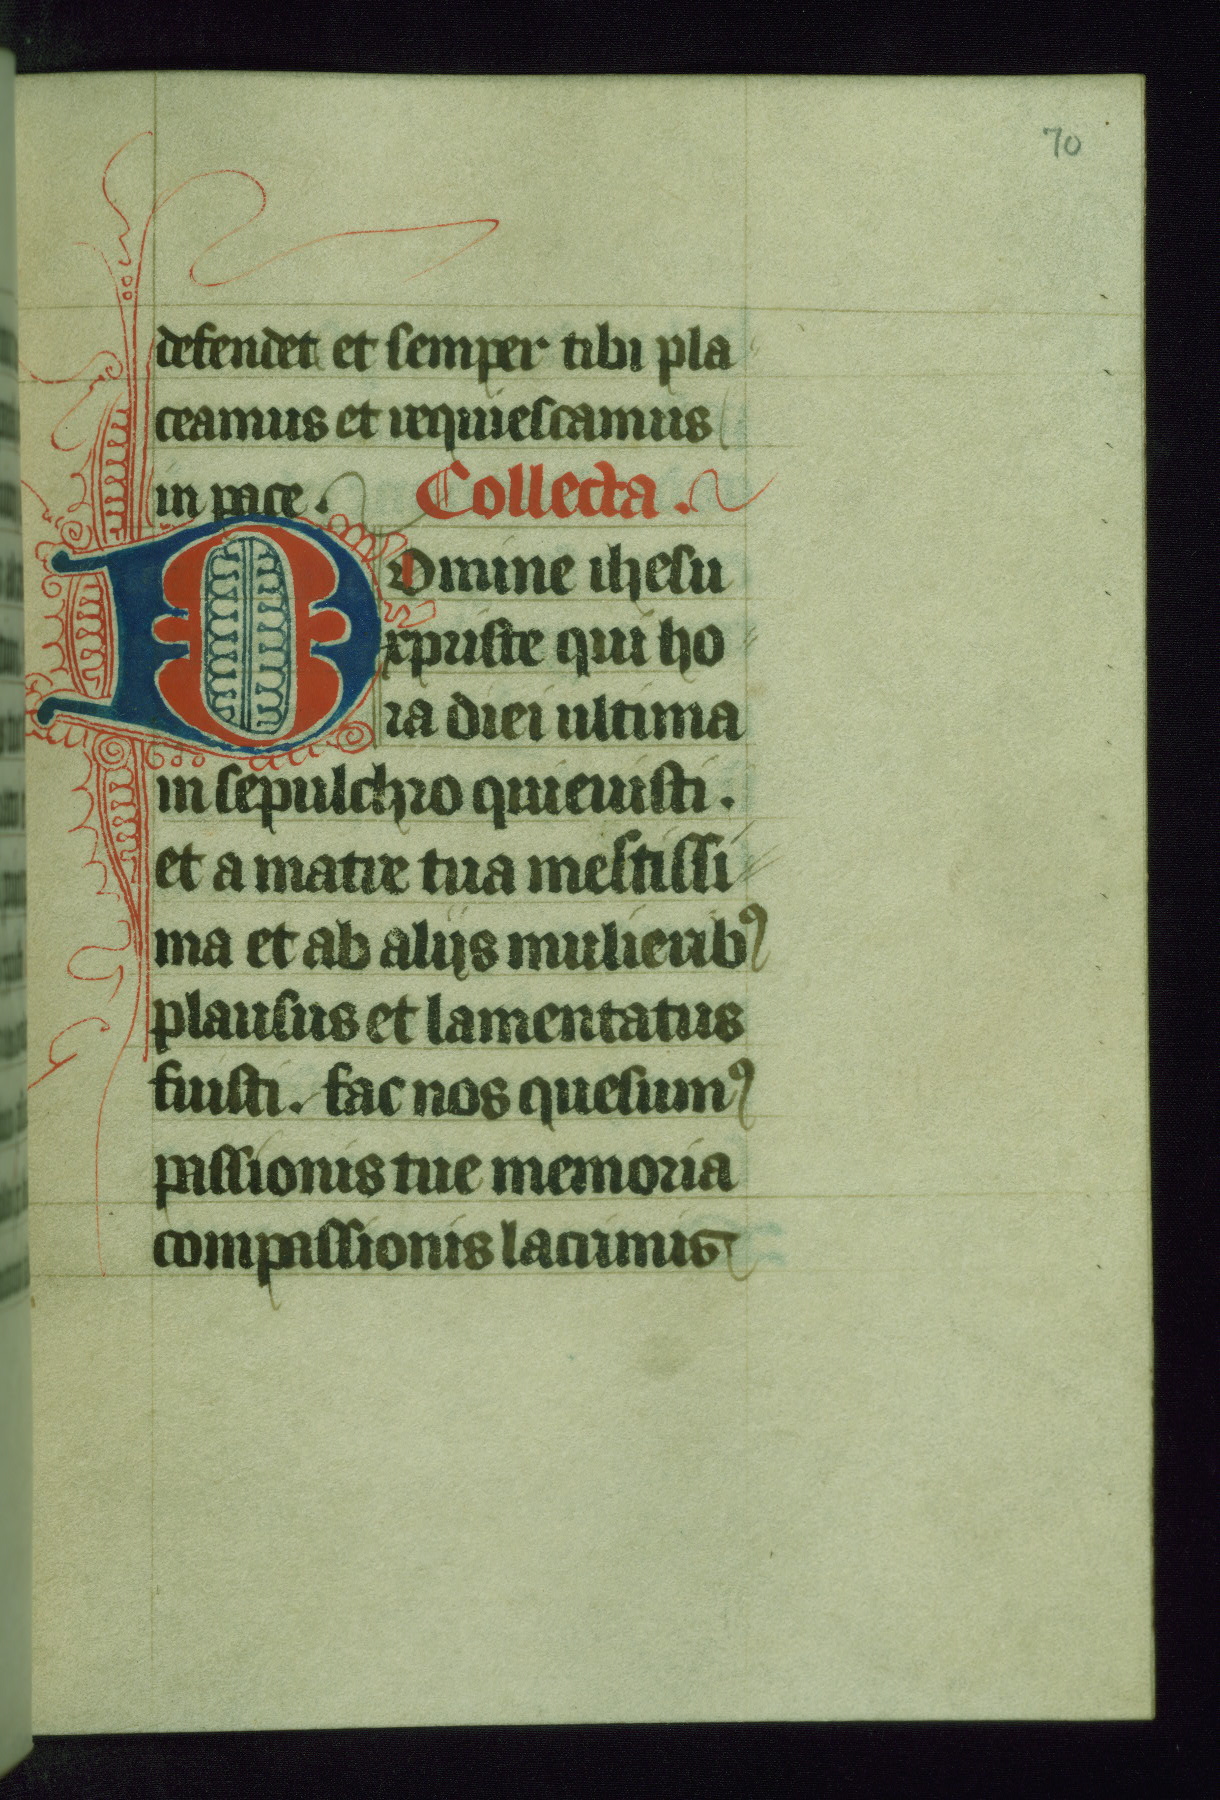 70
defendet et semper tibi pla
ceamus et requiescamus
in pace. Collecta.
Domine ihesu
xpriste qui ho
ra diei ultima
in sepulchro quieuisti.
et a matre tua mestissi
ma et ab alijs mulieribꝰ
plausus et lamentatus
fuisti. fac nos quesumꝰ
passionis tue memoria
compassionis lacrimis